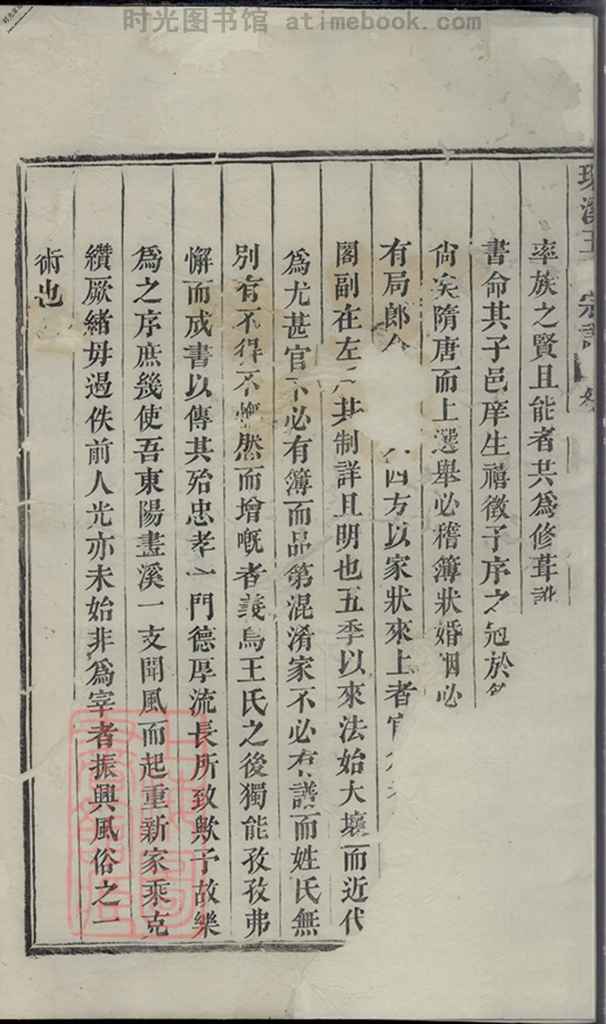 时光图书馆 atimebook.com
溪王 宗譜
率族之賢且能者共為修葺
書命其子邑庠生禧徵子序之冠於
尙矣隋唐而上選舉必稽簿狀婚姻必
有局郎 四方以家狀來上者官
閣副在左 其制詳且明也五季以來法始大壞而近代
為尤甚官不必有簿而品第混淆家不必有譜而姓氏無
別有不得不 然而增嘅者義烏王氏之後獨能孜孜弗
懈而成書以傳其殆忠孝一門德厚流長所致歟予故樂
為之序庶幾使吾東陽畫溪一支聞風而起重新家乘克
纘厥緒毋過佚前人光亦未始非為宰者振興風俗之一
術也